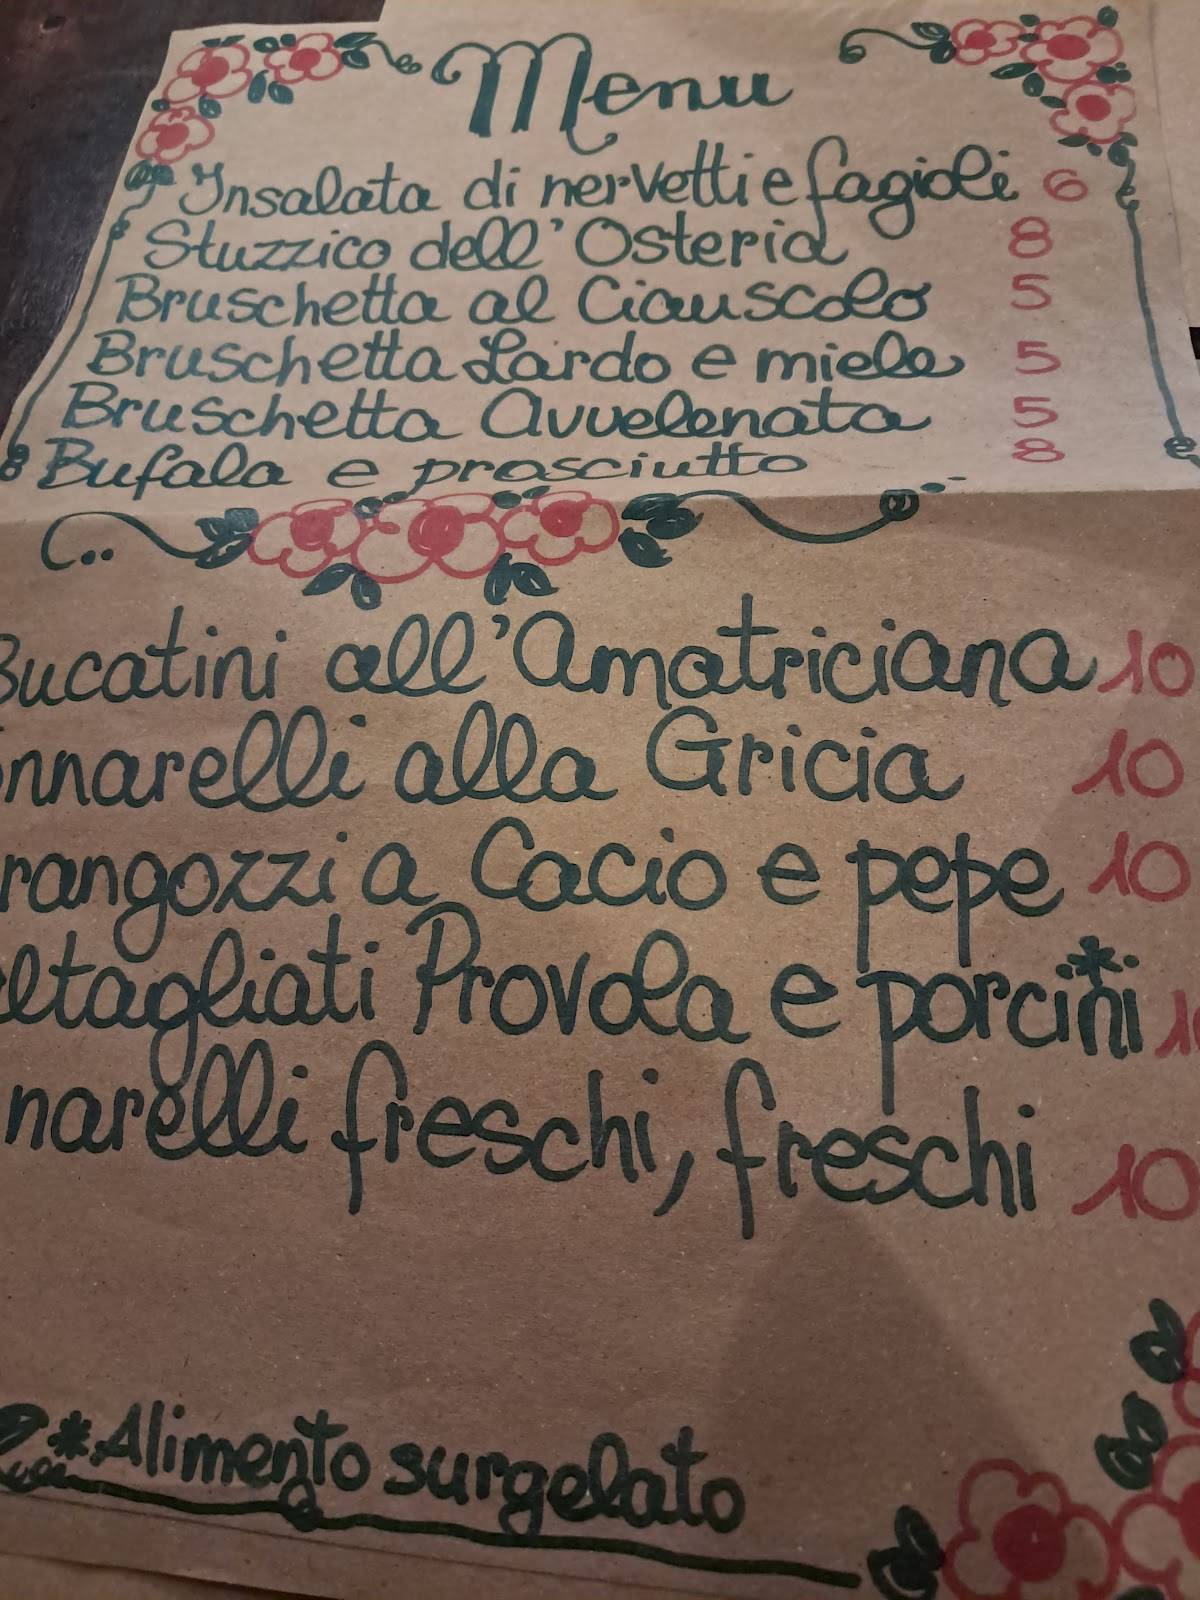 Menu
Insalata di nervetti e fagioli 6
Stuzzico dell'Osteria 8
Bruschetta al Ciauscolo 5
Bruschetta Lardo e miele 5
Bruschetta Avvelenata 5
Bufala e prosciutto 8
Bucatini all'Amatriciana 10
nnarelli alla Gricia 10
rangozzi a Cacio e pepe 10
ltagliati Provola e porcini*
narelli freschi, freschi 10
*Alimento surgelato